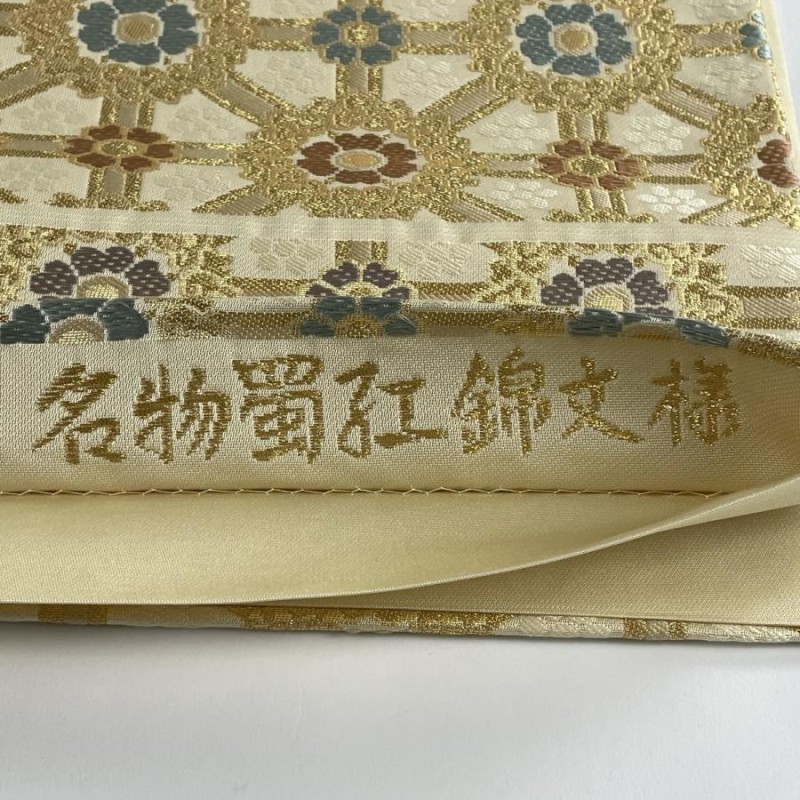 名物蜀紅錦文様